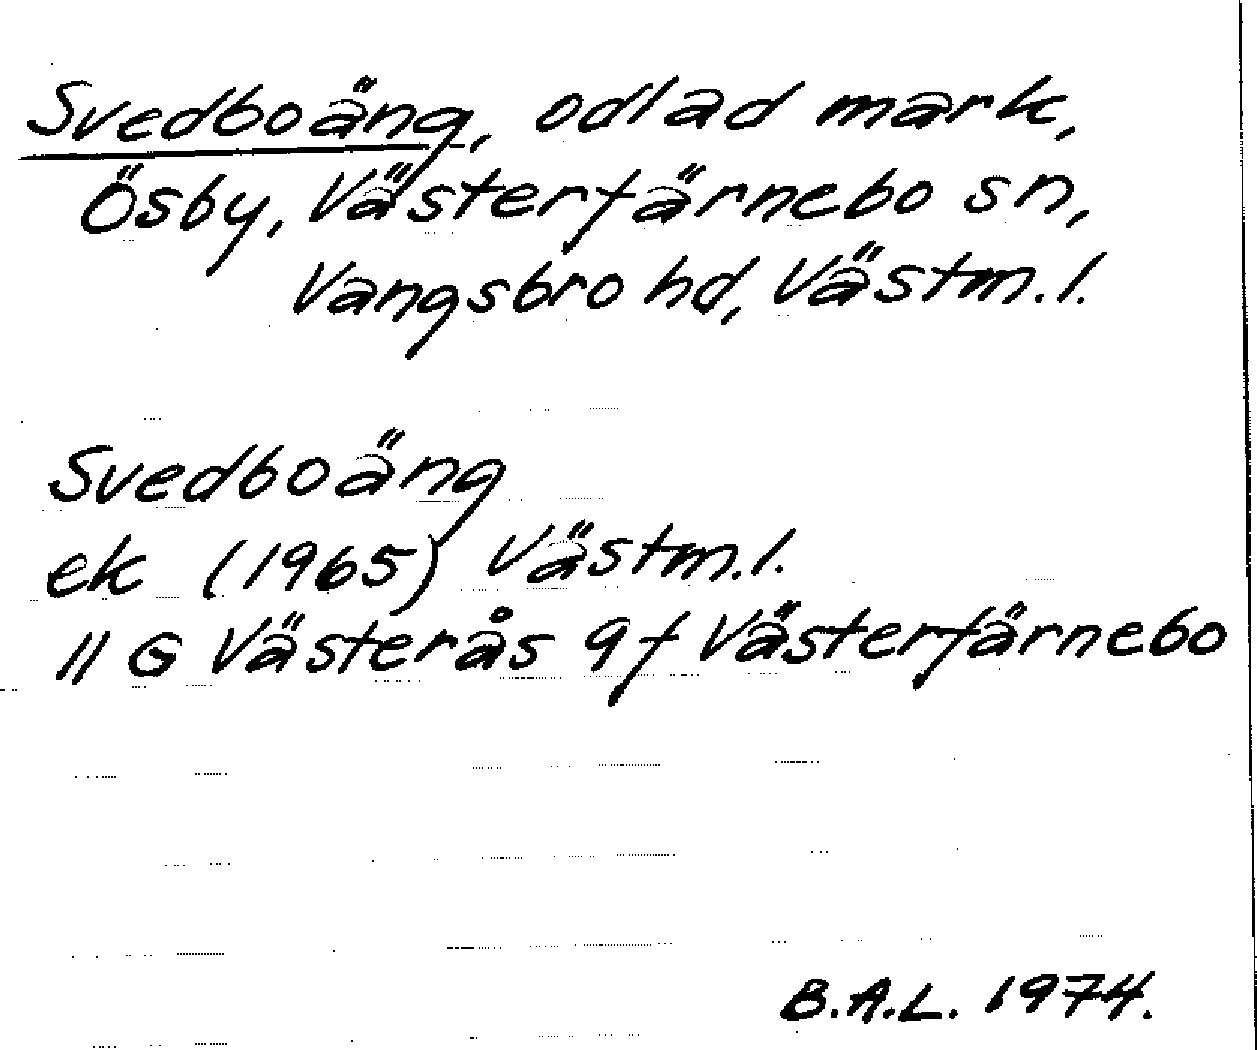 Svedboäng, odlad mark,
Ösby, Västerfärnebo sn,
Vangsbro hd, Västm.l.
Svedboäng
ek (1965) Västm.l.
11 G Västerås 9f Västerfärnebo
B.A.L. 1974.